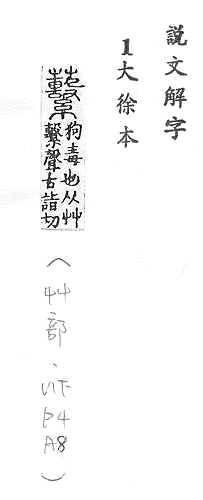 説文解字
1大徐本
蘻
狗毒也从艸
繫聲古詣切
（艸部、下P4A8）